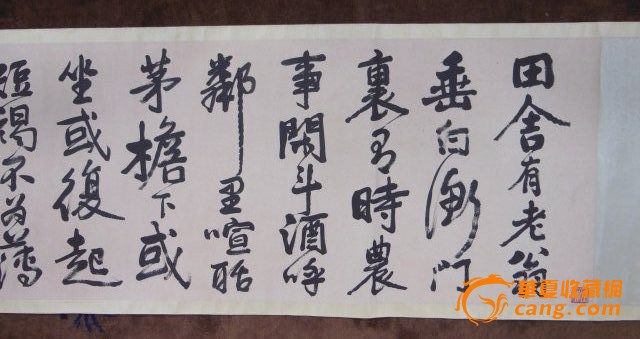 田舍有老翁
垂白衡門
裏有時農
事閑斗酒呼
鄰里喧聒
茅檐下或
坐或復起
短褐不為薄
華夏收藏網
cang.com